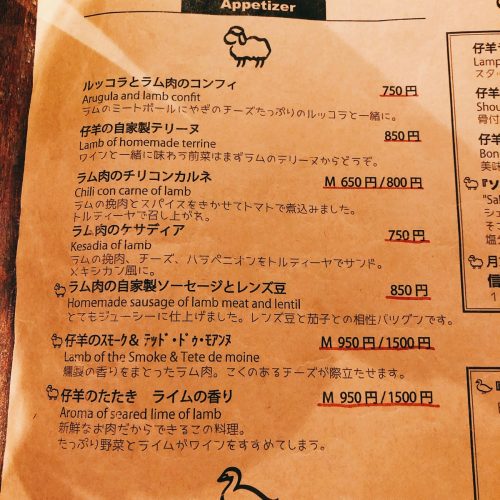 Appetizer
ルッコラとラム肉のコンフィ 750円
Arugula and lamb confit
ラムのミートボールにやぎのチーズたっぷりのルッコラと一緒に。
仔羊の自家製テリーヌ 850円
Lamb of homemade terrine
ワインと一緒に味わう前菜はまずラムのテリーヌからどうぞ。
ラム肉のチリコンカルネ M 650円/800円
Chili con carne of lamb
ラムの挽肉とスパイスをきかせてトマトで煮込みました。
トルティーヤで召し上がれ。
ラム肉のケサディア 750円
Kesadia of lamb
ラムの挽肉、チーズ、ハラペニオンをトルティーヤでサンド。
メキシカン風に。
ラム肉の自家製ソーセージとレンズ豆 850円
Homemade sausage of lamb meat and lentil
とてもジューシーに仕上げました。レンズ豆と茄子との相性バツグンです。
仔羊のスモーク& テッド・ドゥ・モアンヌ M 950円/1500円
Lamb of the Smoke & Tete de moine
燻製の香りをまとったラム肉。こくのあるチーズが際立たせます。
仔羊のたたき ライムの香り M 950円/1500円
Aroma of seared lime of lamb
新鮮なお肉だからできるこの料理。
たっぷり野菜とライムがワインをすすめてしまう。
仔羊
Lamp
スタッ
仔羊
Shou
骨付
仔羊
Bon
美味
"Sal
月